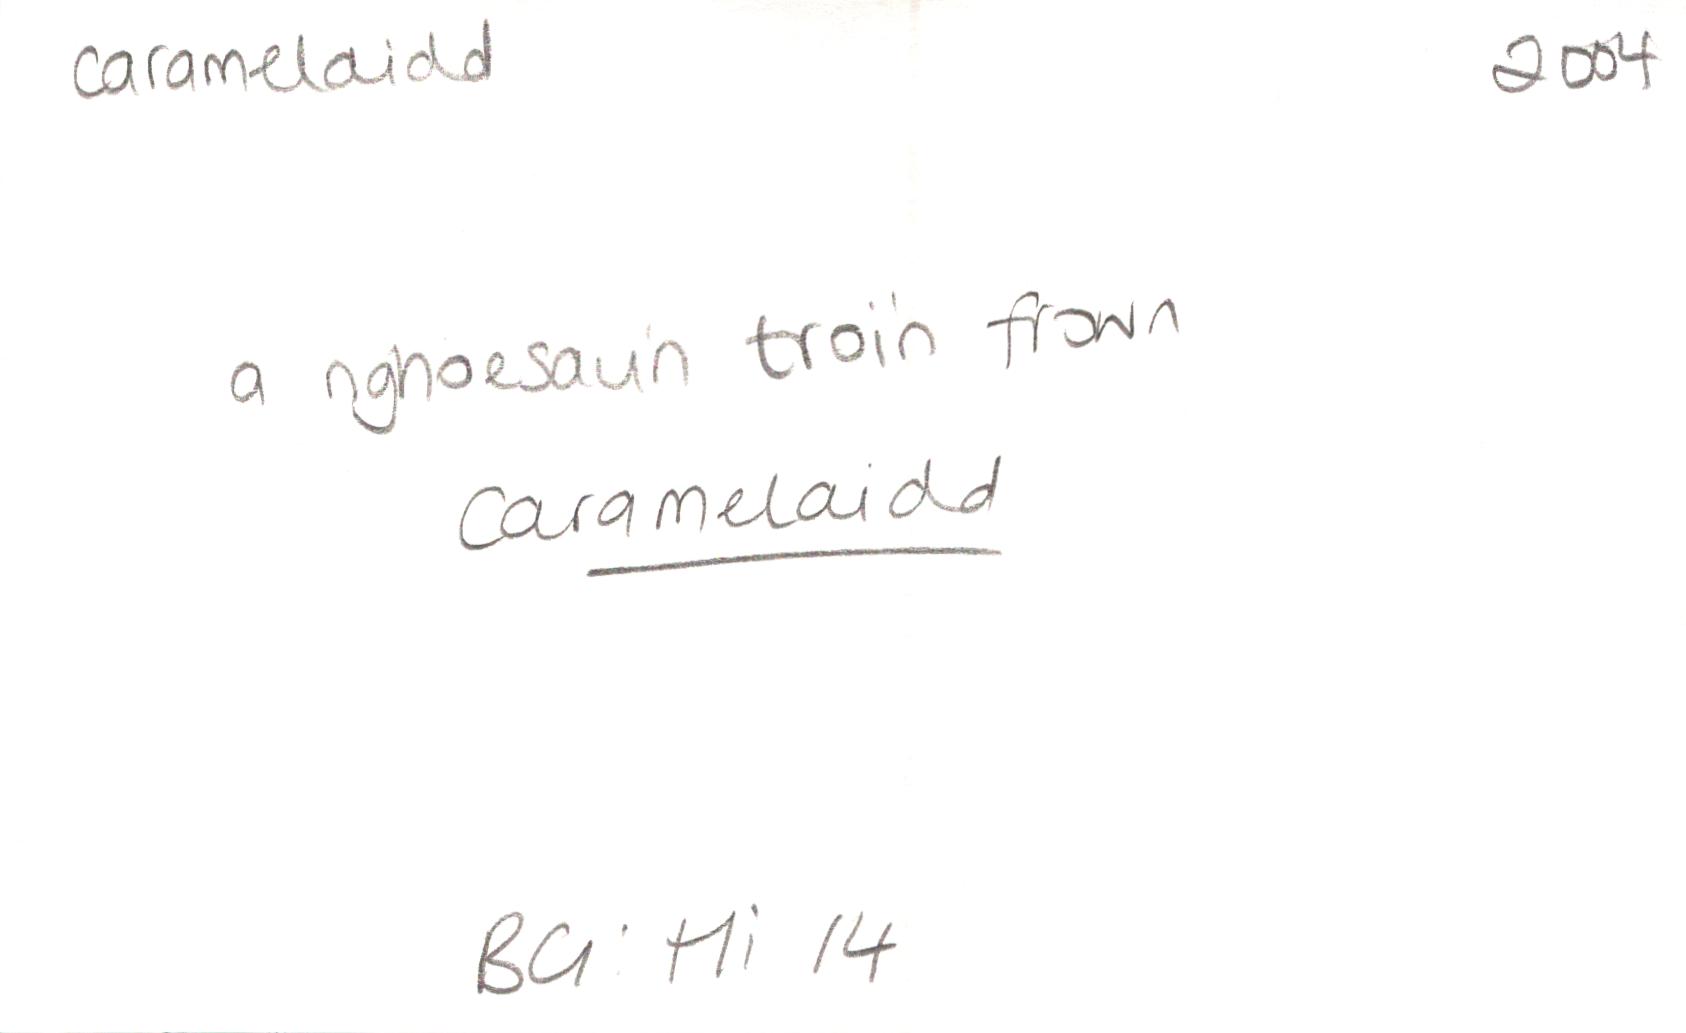 caramelaidd 2004
a nghoesau'n troi'n frown
caramelaidd
BG: Hi 14